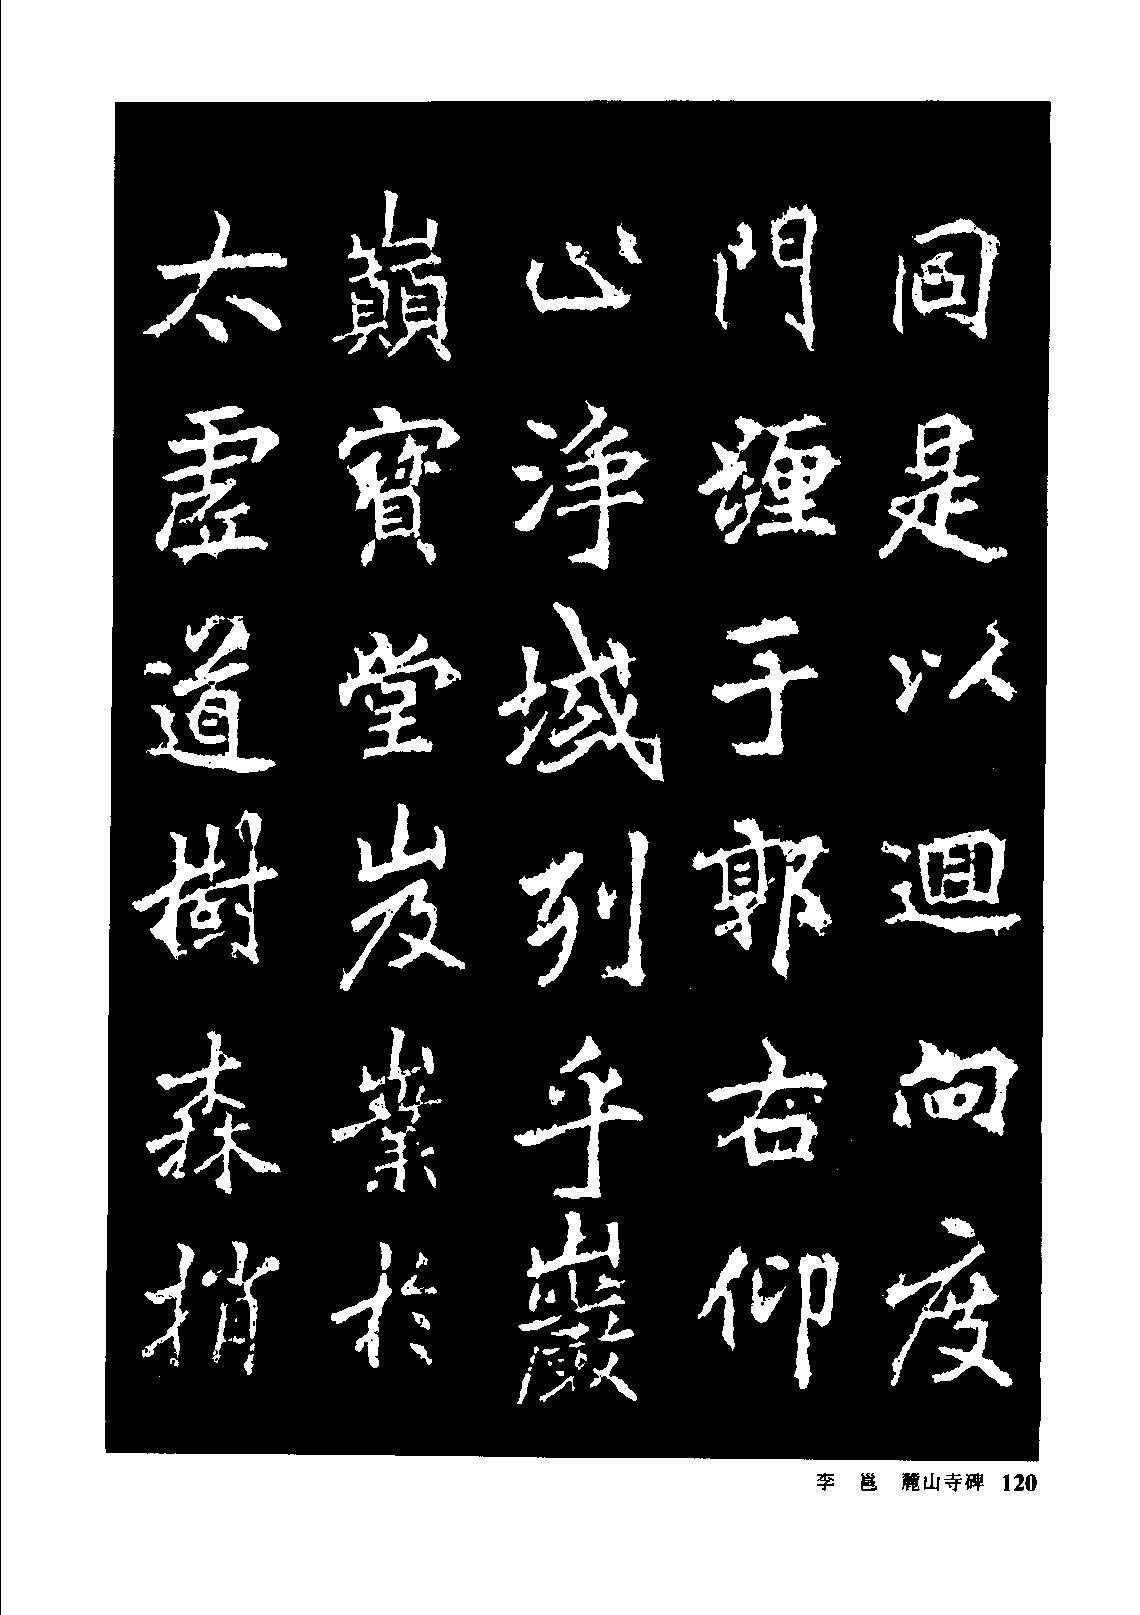 同是以迴向度
門㕓于郭右仰
心淨域列乎巖
巔寶堂岌業於
太虛道樹森捎
李 邕 麓山寺碑 120